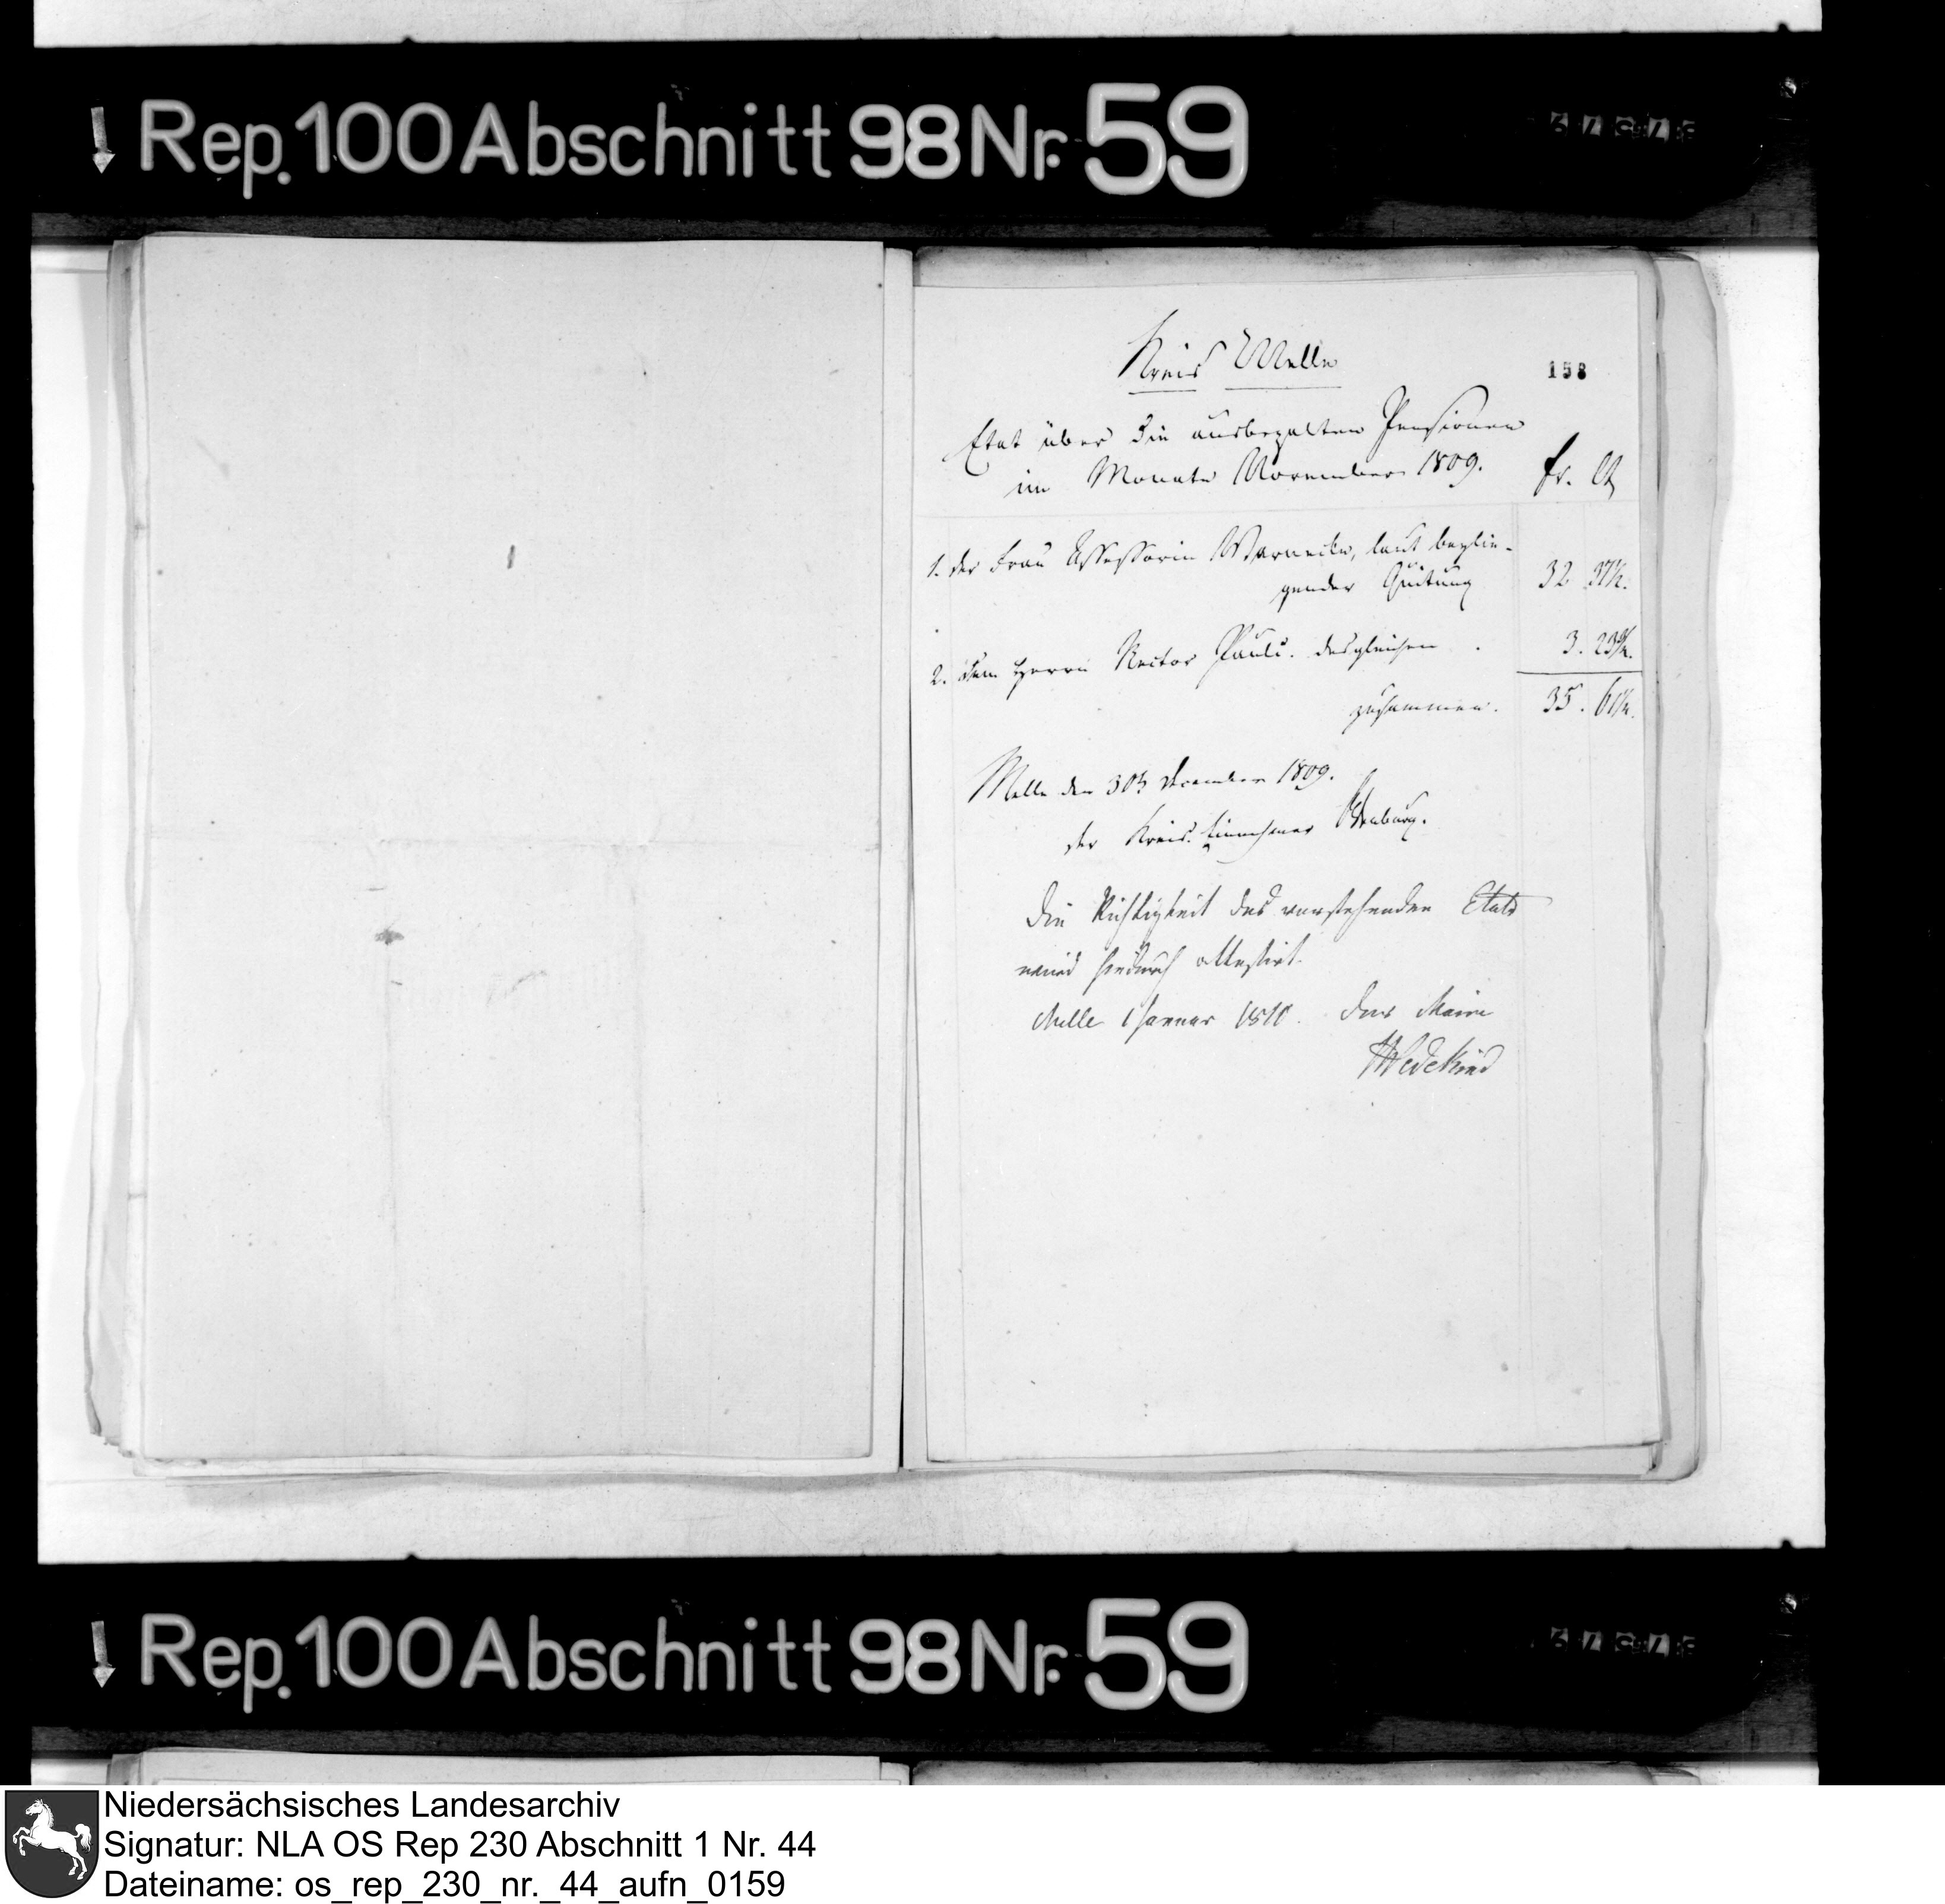 Rep. 100 Abschnitt 98 Nr. 59
Kreis Melle
158
Etat über die ausbezalten Pensionen
im Monate November 1809.
fr. Ct
1. der Frau Assessorin Warnecke, laut beylie-
gender Quitung 32 37½.
2. dem Herrn Rector Pauli. desgleichen . 3. 23¾.
zusammen. 35. 61¼.
Melle den 30t December 1809.
der Kreis Einnehmer Oldenburg.
Die Richtigkeit des vorstehenden Etats
wird hiedurch attestirt.
Melle 1 Januar 1810. Der Maire
Wedekind
Rep. 100 Abschnitt 98 Nr. 59
Niedersächsisches Landesarchiv
Signatur: NLA OS Rep 230 Abschnitt 1 Nr. 44
Dateiname: os_rep_230_nr._44_aufn_0159